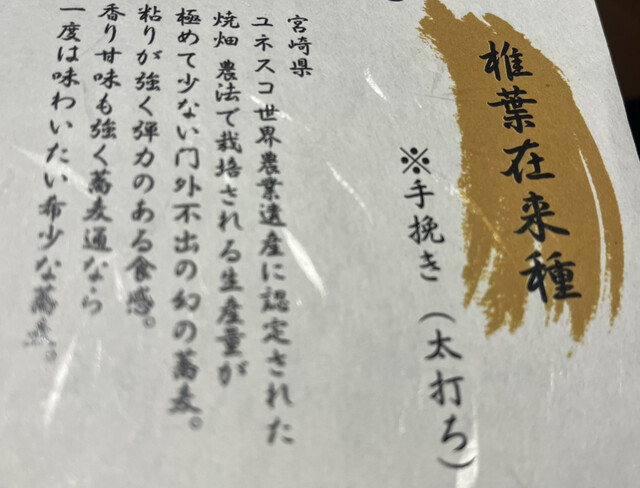 椎葉在来種
※手挽き（太打ち）
宮崎県
ユネスコ世界農業遺産に認定された
焼畑農法で栽培される生産量が
極めて少ない門外不出の幻の蕎麦。
粘りが強く弾力のある食感。
香り甘味も強く蕎麦通なら
一度は味わいたい希少な蕎麦。